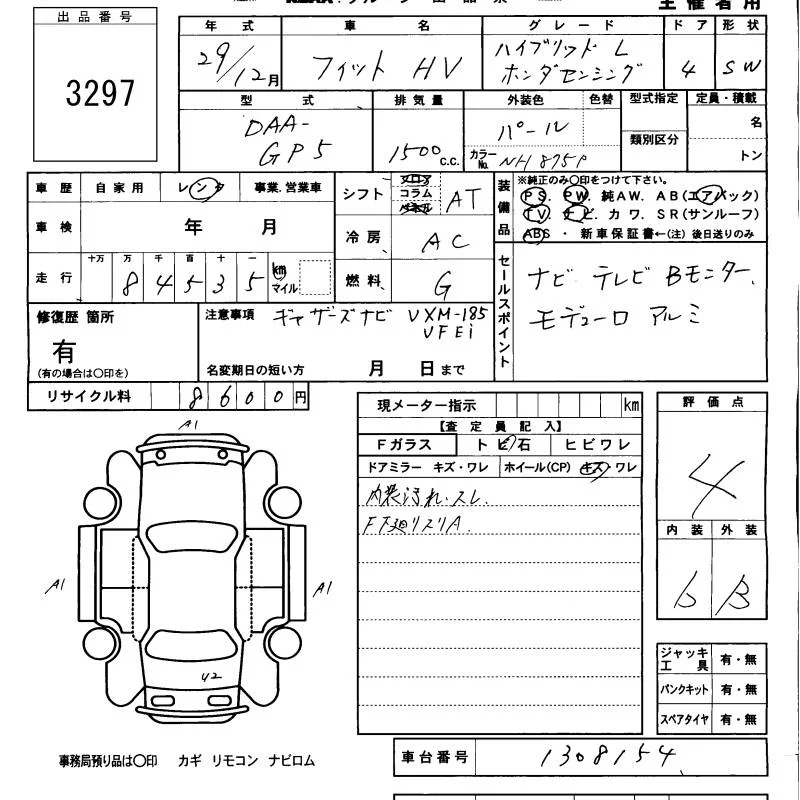 出品番号
3297
主催者用
年式 車名 グレード ドア 形状
29/12月 フィット HV ハイブリッド L ホンダセンシング 4 SW
型式 排気量 外装色 色替 型式指定 定員・積載
DAA-GP5 1500c.c. パール カラーNo. NH875P 類別区分 名 トン
車歴 自家用 レンタ 事業.営業車
シフト フロア コラム パネル AT
装備品 ※純正のみ○印をつけて下さい。
PS. PW. 純AW. AB(エアバック)
TV. ナビ. カワ. SR(サンルーフ)
ABS ・ 新車保証書←(注) 後日送りのみ
車検 年 月
冷房 AC
走行 十万 万 千 百 十 一
84535 km マイル
燃料 G
セールスポイント
ナビ テレビ Bモニター.
モデューロ アルミ
修復歴 箇所
有
(有の場合は○印を)
注意事項 ギャザーズナビ VXM-185
VFEi
名変期日の短い方 月 日まで
リサイクル料 8600円
現メーター指示 km
【査定員記入】
Fガラス トビ石 ヒビワレ
ドアミラー キズ・ワレ ホイール(CP) キズ・ワレ
内装汚れ.スレ.
F下廻リスリA.
評価点
4
内装 外装
b B
A1
A1
A1
U2
ジャッキ工具 有・無
パンクキット 有・無
スペアタイヤ 有・無
事務局預り品は○印 カギ リモコン ナビロム
車台番号 1308154